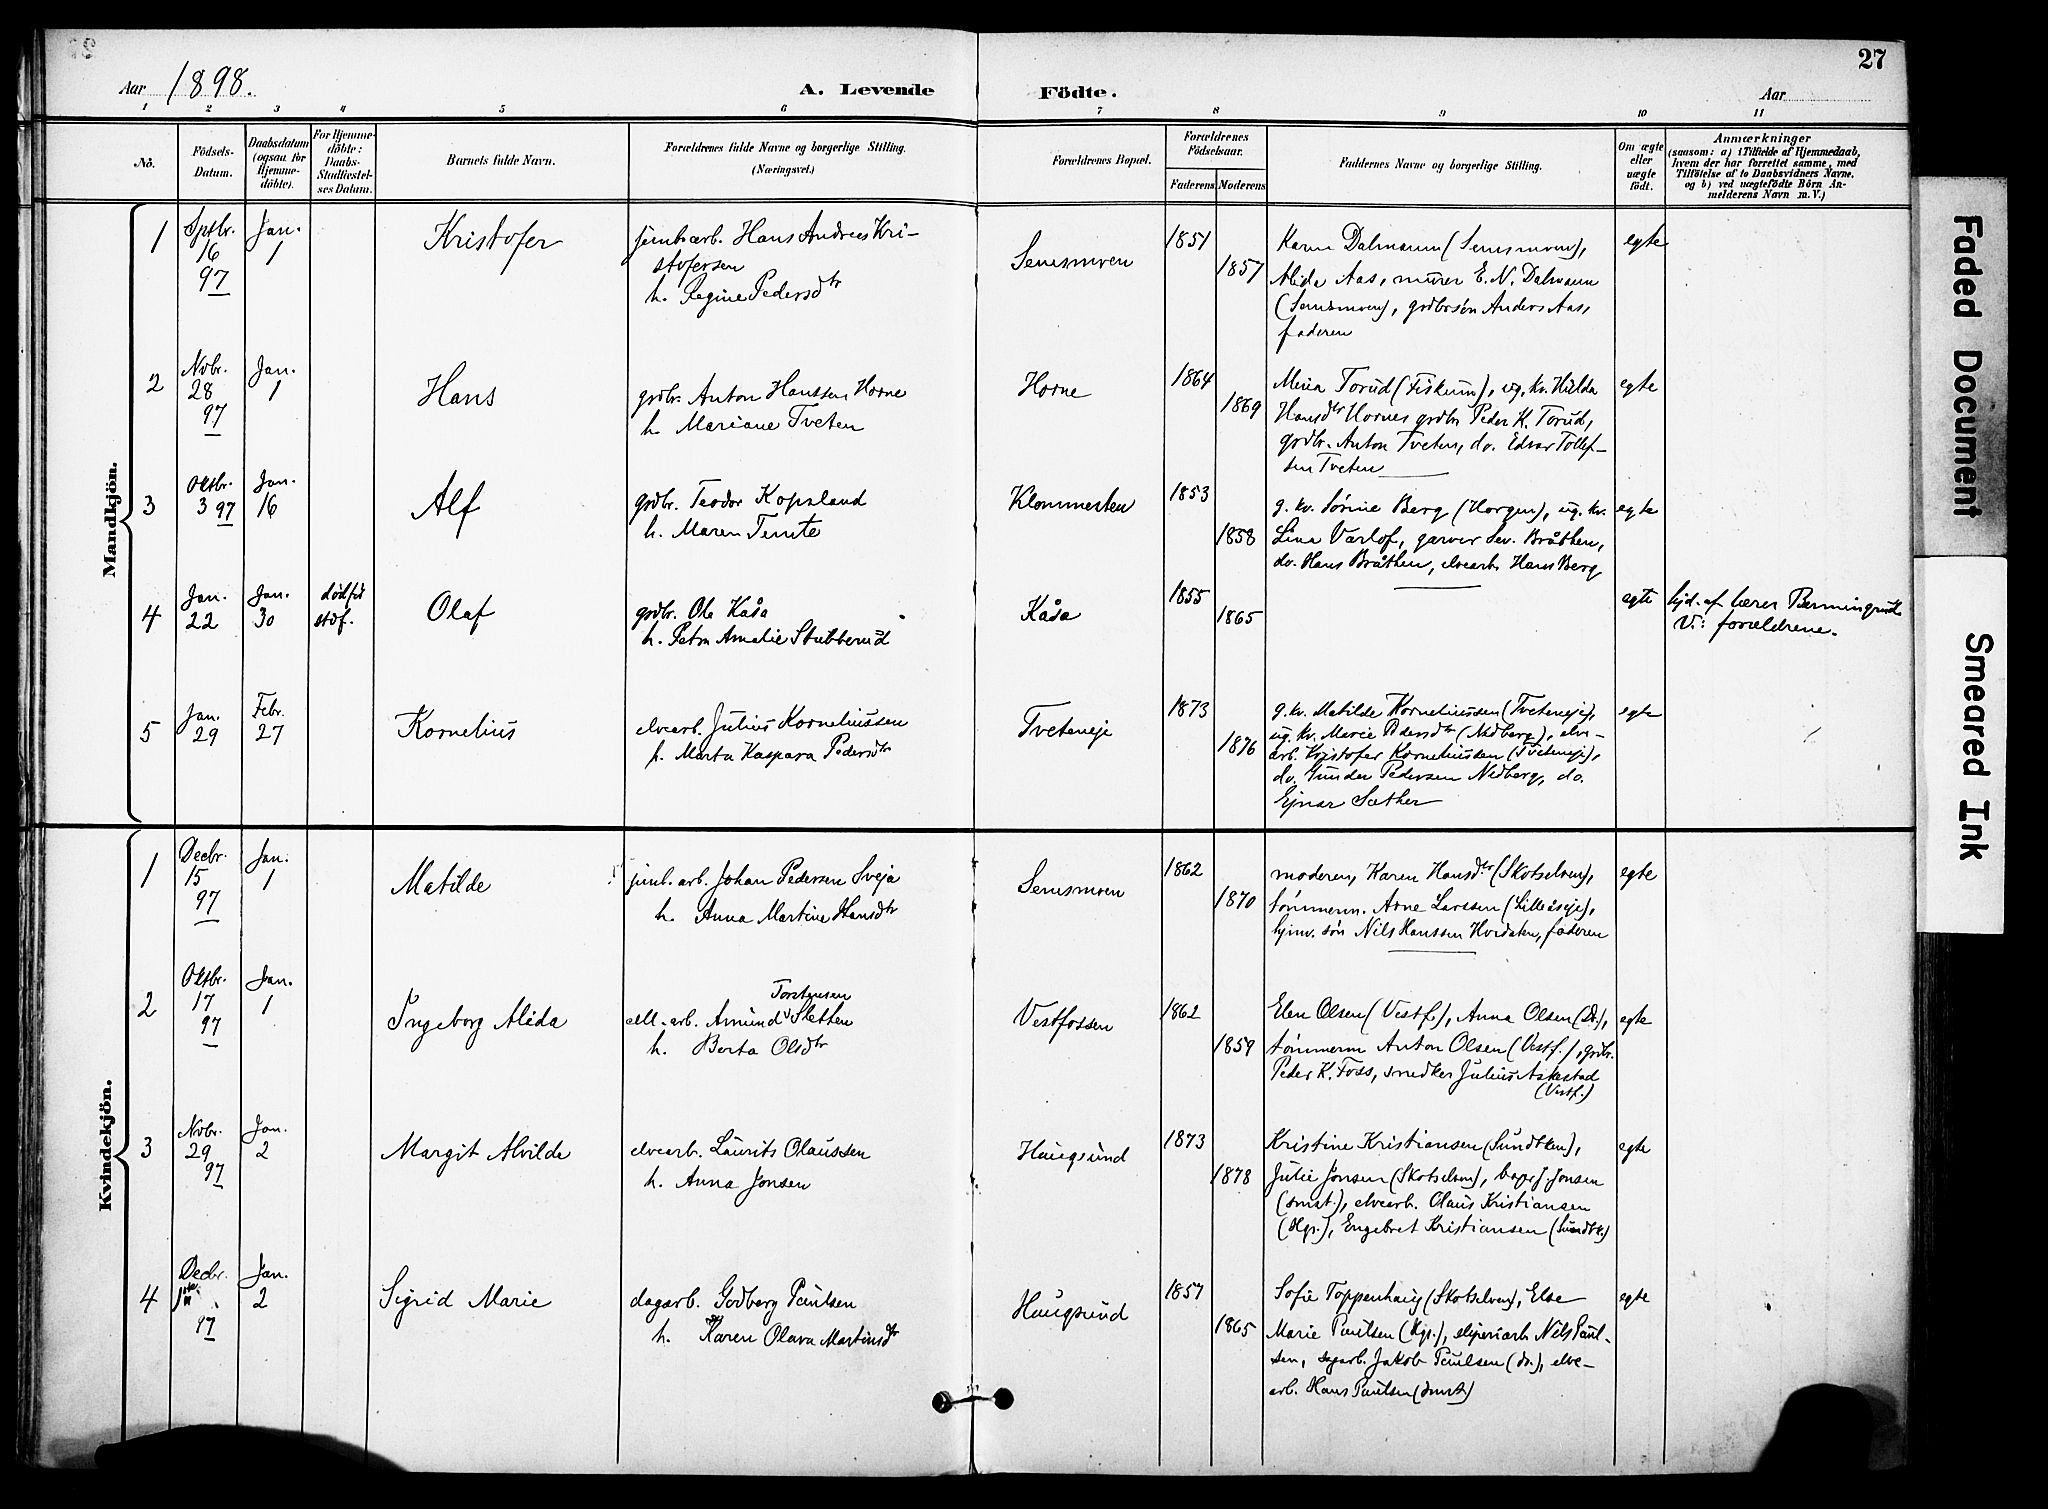 27
Aar 1898.
A. Levende Födte.
Aar
1 2 3 4 5 6 7 8 9 10 11
No.
Födsels-Datum.
Daabsdatum (ogsaa for Hjemme-döbte).
For Hjemme-döbte: Daabs-Stadfæstel-ses Datum.
Barnets fulde Navn.
Forældrenes fulde Navne og borgerlige Stilling. (Næringsvei.)
Forældrenes Bopæl.
Forældrenes Födselsaar.
Faderens Moderens
Faddernes Navne og borgerlige Stilling.
Om ægte eller uægte födt.
Anmærkninger
(saasom: a) i Tilfælde af Hjemmedaab, hvem der har forrettet samme, med Tilföielse af to Daabsvidners Navne, og b) ved uægtefödte Börn An-melderens Navn m. V.)
Mandkjön.
1 Sptbr. 16 97 Jan. 1 Kristofer
jernb.arb. Hans Andreas Kri-
stofersen
h. Regine Pedersdtr
Semsmoen 1851 1857
Karen Dalmann (Semsmoen),
Alida Aas, murer E. N. Dalmann
(Semsmoen), grdbrsøn Anders Aas,
faderen
egte
2 Nvbr. 28 97 Jan. 1 Hans
grdbr. Anton Hanssen Horne
h. Mariane Tveten
Horne 1864 1869
Torud (Fiskum), ug. kv. Hilda
Hansdtr Hornes grdbr. Peder K. Torud,
grdbr. Anton Tveten, do. Edvar Tollef-
sen Tveten
egte
3 Oktbr. 3 97 Jan. 16 Alf
grdbr. Teodor Kopsland
h. Maren Temte
Klommesten 1853 1858
g. kv. Sørine Berg (Horgen), ug. kv.
Lina Varlof, garver Sev. Bråthen,
do. Hans Bråthen, elvearb. Hans Berg
egte
4 Jan. 22 Jan. 30 død før stdf. Olaf
grdbr. Ole Kåsa
h. Petra Amalie Stubberud
Kåsa 1855 1865
egte
hjd. af lærer
V.: forældrene.
5 Jan. 29 Febr. 27 Kornelius
elvearb. Julius Korneliussen
h. Marta Kaspara Pedersdtr
Tveteneje 1873 1876
g. kv. Matilde Korneliussen (Tveteneje),
ug. kv. Marie Pedersdtr (Nedberg), elve-
arb. Kristofer Korneliussen (Tveteneje),
do. Gunder Pedersen Nedberg, do.
Ejnar Sæther
egte
Kvindekjön.
1 Decbr. 15 97 Jan. 1 Matilde
jernb. arb. Johan Pedersen Sveja
h. Anna Martine Hansdtr
Semsmoen 1862 1870
moderen, Karen Hansdtr (Skotselven),
tømmerm. Arne Larssen (Lilleåseje),
hjmv. søn Nils Hanssen Hvidsten, faderen
egte
2 Oktbr. 17 97 Jan. 1 Ingeborg Alida
Torstensen
cell. arb. Amund Sletten
h. Berta Olsdtr
Vestfossen 1862 1859
Elen Olsen (Vestf.), Anna Olsen (Do.),
tømmerm Anton Olsen (Vestf.), grdbr.
Peder K. Foss, snedker Julius Askestad
(Vestf.)
egte
3 Nvbr. 29 97 Jan. 2 Margit Alvilde
elvearb. Laurits Olaussen
h. Anna Jonsen
Haugsund 1873 1878
Kristine Kristiansen (Sundbken),
Julie Jonsen (Skotselven), J. Jonsen
(smst.), elvearb. Olaus Kristiansen
(Hgs.), Engebret Kristiansen (Sundbk.)
egte
4 Decbr. 97 Jan. 2 Sigrid Marie
dagarb. Godberg Paulsen
h. Karen Olava Martinsdtr
Haugsund 1857 1865
Sofie Toppenhaug (Skotselven), Else
Marie Paulsen (Hgs.), sliperiarb Nils Paul-
sen, sagarb. Jakob Paulsen (do.), elve-
arb. Hans Paulsen (smst)
egte
Faded Document
Smeared Ink